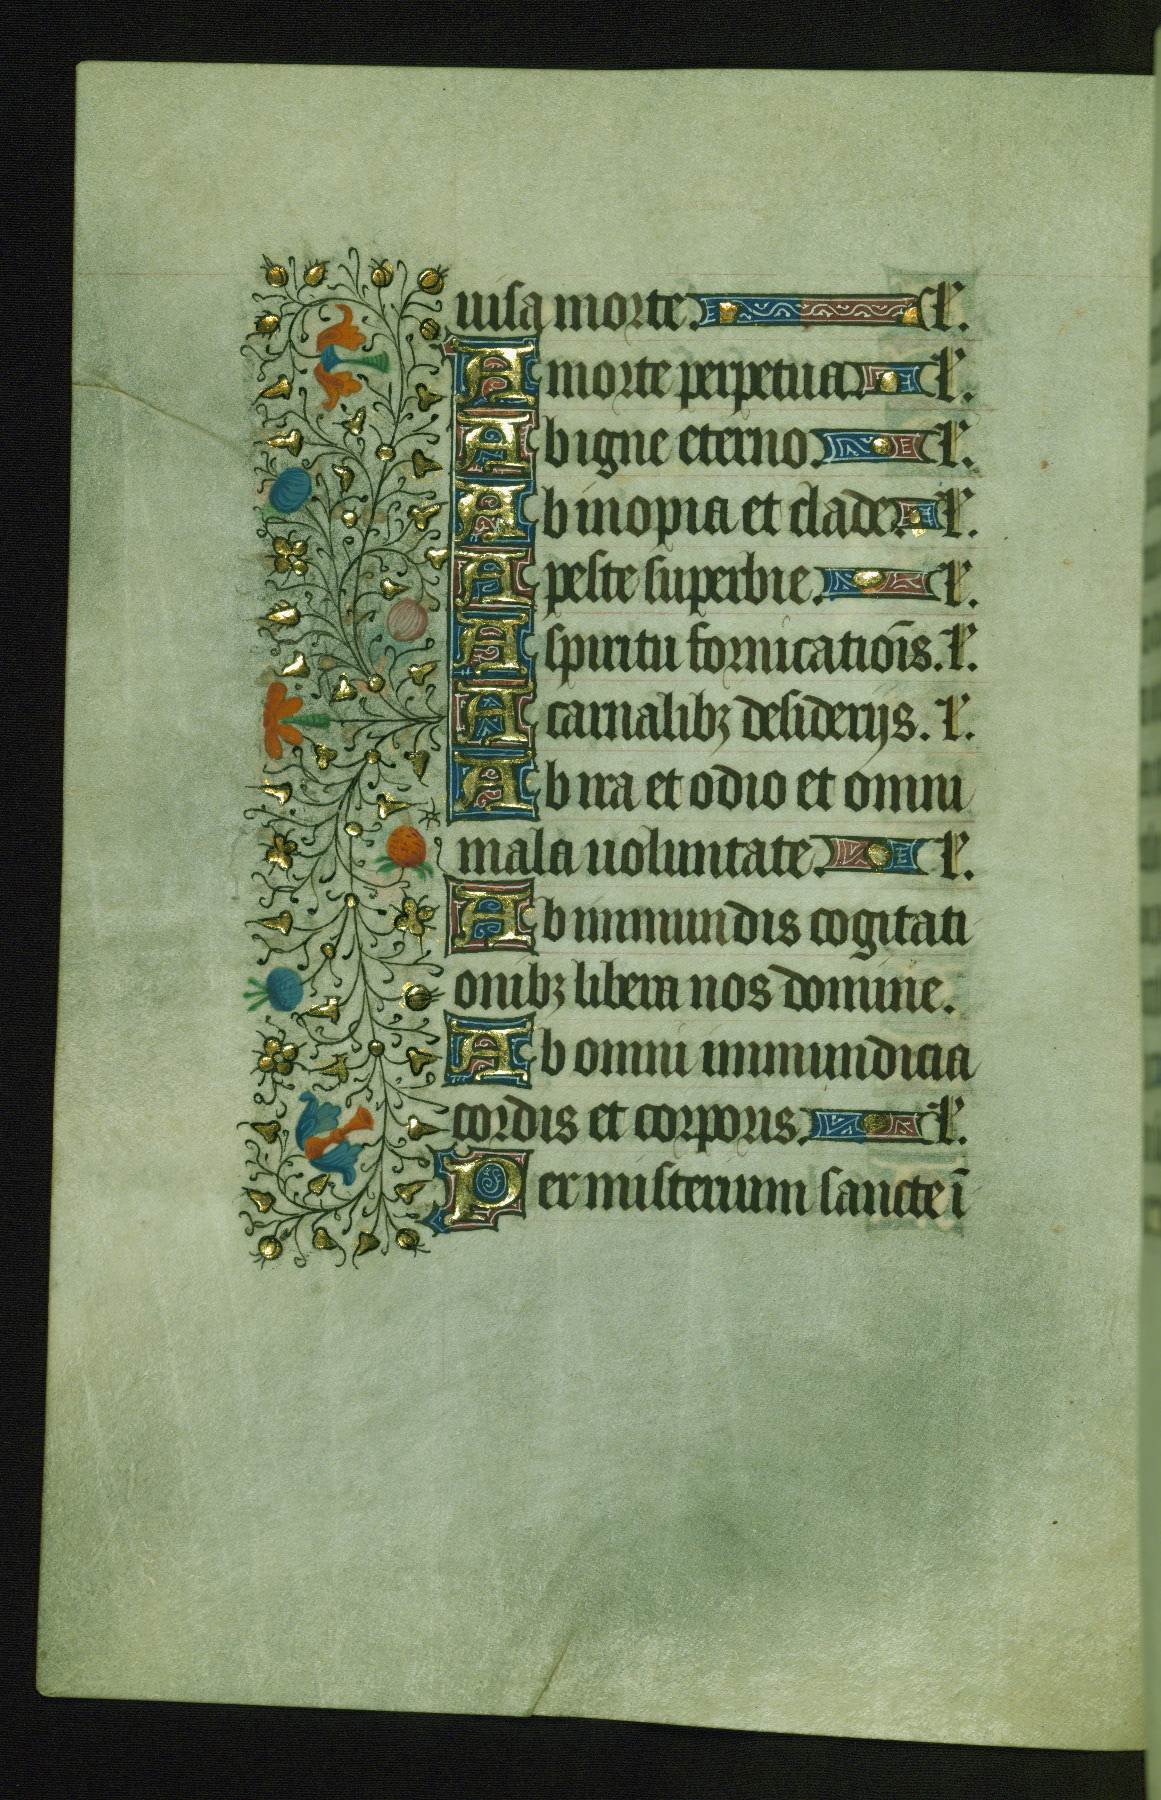 uisa morte. l'.
A morte perpetua. l'.
Ab igne eterno. l'.
Ab inopia et clade. l'.
A peste superbie. l'.
A spiritu fornicatiōis. l'.
A carnalibꝫ desiderijs. l'.
Ab ira et odio et omni
mala uoluntate. l'.
Ab inmundis cogitati
onibꝫ libera nos domine.
Ab omni inmundicia
cordis et corporis. l'.
Per misterium sancte ī